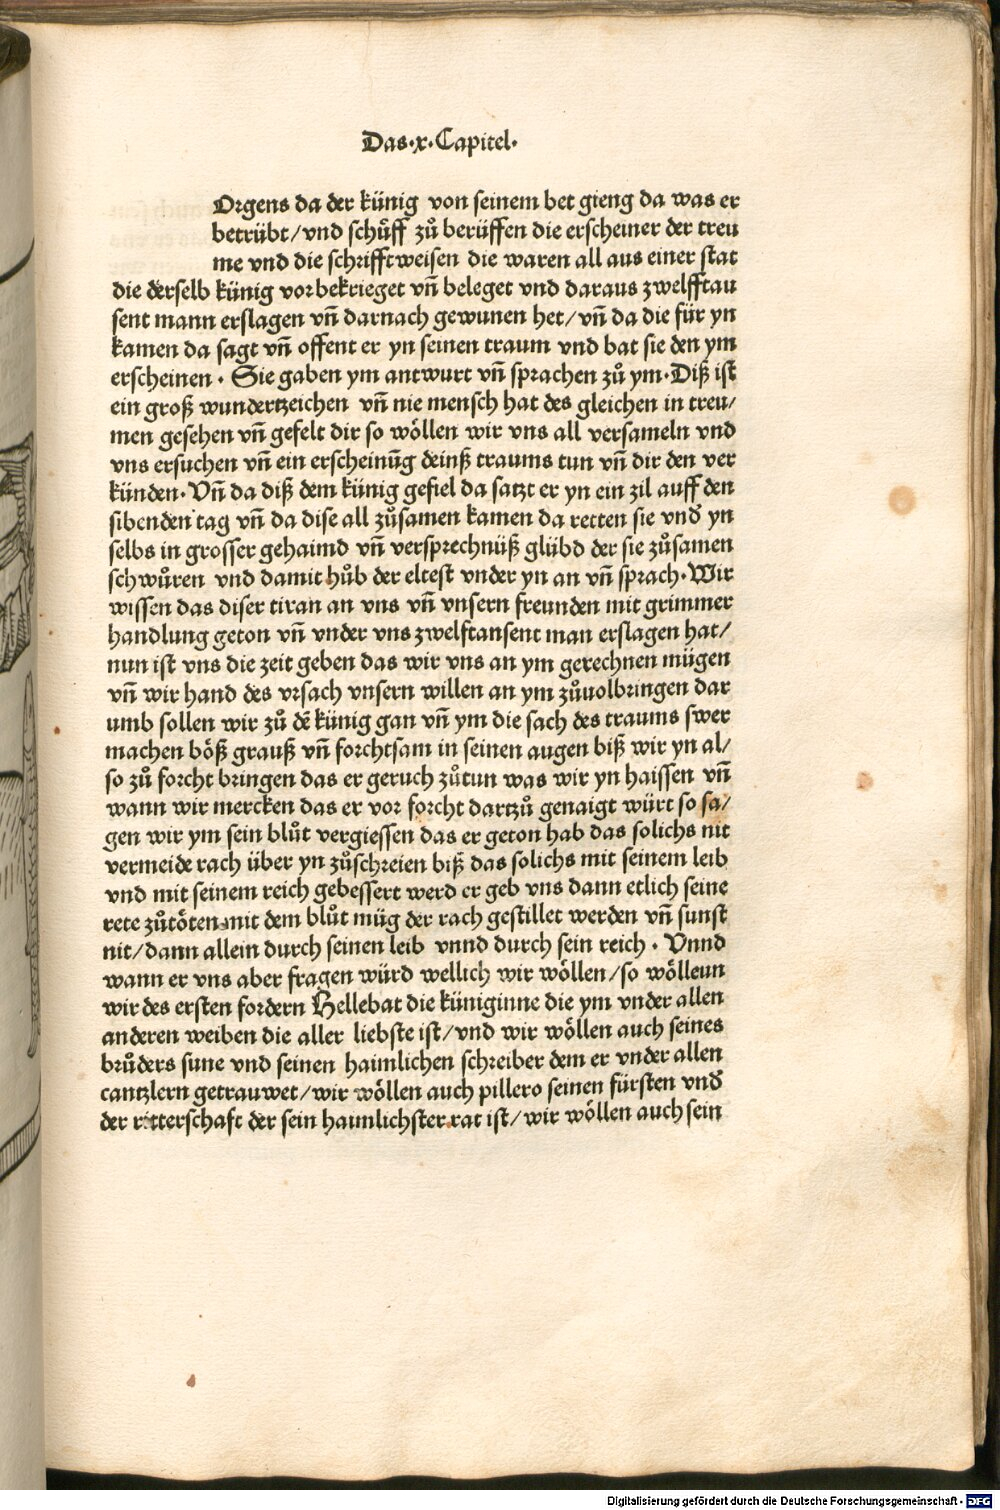 Das·x·Capitel·
Orgens da der künig von seinem bet gieng da was er
betrübt/vnd schůff zů berüffen die erscheiner der treu
me vnd die schrifftweisen die waren all aus einer stat
die derselb künig vor bekrieget vñ beleget vnd daraus zwelfftau
sent mann erslagen vñ darnach gewunen het/vñ da die für yn
kamen da sagt vñ offent er yn seinen traum vnd bat sie den ym
erscheinen · Sie gaben ym antwurt vñ sprachen zů ym·Diß ist
ein groß wundertzeichen vñ nie mensch hat des gleichen in treu/
men gesehen vñ gefelt dir so wöllen wir vns all versameln vnd
vns ersuchen vñ ein erscheinũg deinß traums tun vñ dir den ver
künden·Vñ da diß dem künig gefiel da satzt er yn ein zil auff den
sibenden tag vñ da dise all zůsamen kamen da retten sie vnd̕ yn
selbs in grosser gehaimd vñ versprechnüß glübd der sie zůsamen
schwůren vnd damit hůb der eltest vnder yn an vñ sprach·Wir
wissen das diser tiran an vns vñ vnsern freunden mit grimmer
handlung geton vñ vnder vns zwelftansent man erslagen hat/
nun ist vns die zeit geben das wir vns an ym gerechnen mügen
vñ wir hand des vrsach vnsern willen an ym zůuolbringen dar
umb sollen wir zů dẽ künig gan vñ ym die sach des traums swer
machen böß grauß vñ forchtsam in seinen augen biß wir yn al/
so zů forcht bringen das er geruch zůtun was wir yn haissen vñ
wann wir mercken das er vor forcht dartzů genaigt würt so sa/
gen wir ym sein blůt vergiessen das er geton hab das solichs nit
vermeide rach über yn zůschreien biß das solichs mit seinem leib
vnd mit seinem reich gebessert werd er geb vns dann etlich seine
rete zůtöten·mit dem blůt müg der rach gestillet werden vñ sunst
nit/dann allein durch seinen leib vnnd durch sein reich · Vnnd
wann er vns aber fragen würd wellich wir wöllen/so wölleun
wir des ersten fordern Hellebat die küniginne die ym vnder allen
anderen weiben die aller liebste ist/vnd wir wöllen auch seines
brůders sune vnd seinen haimlichen schreiber dem er vnder allen
cantzlern getrauwet/wir wöllen auch pillero seinen fürsten vnd̕
der ritterschaft der sein haimlichster rat ist/wir wöllen auch sein
Digitalisierung gefördert durch die Deutsche Forschungsgemeinschaft - DFG